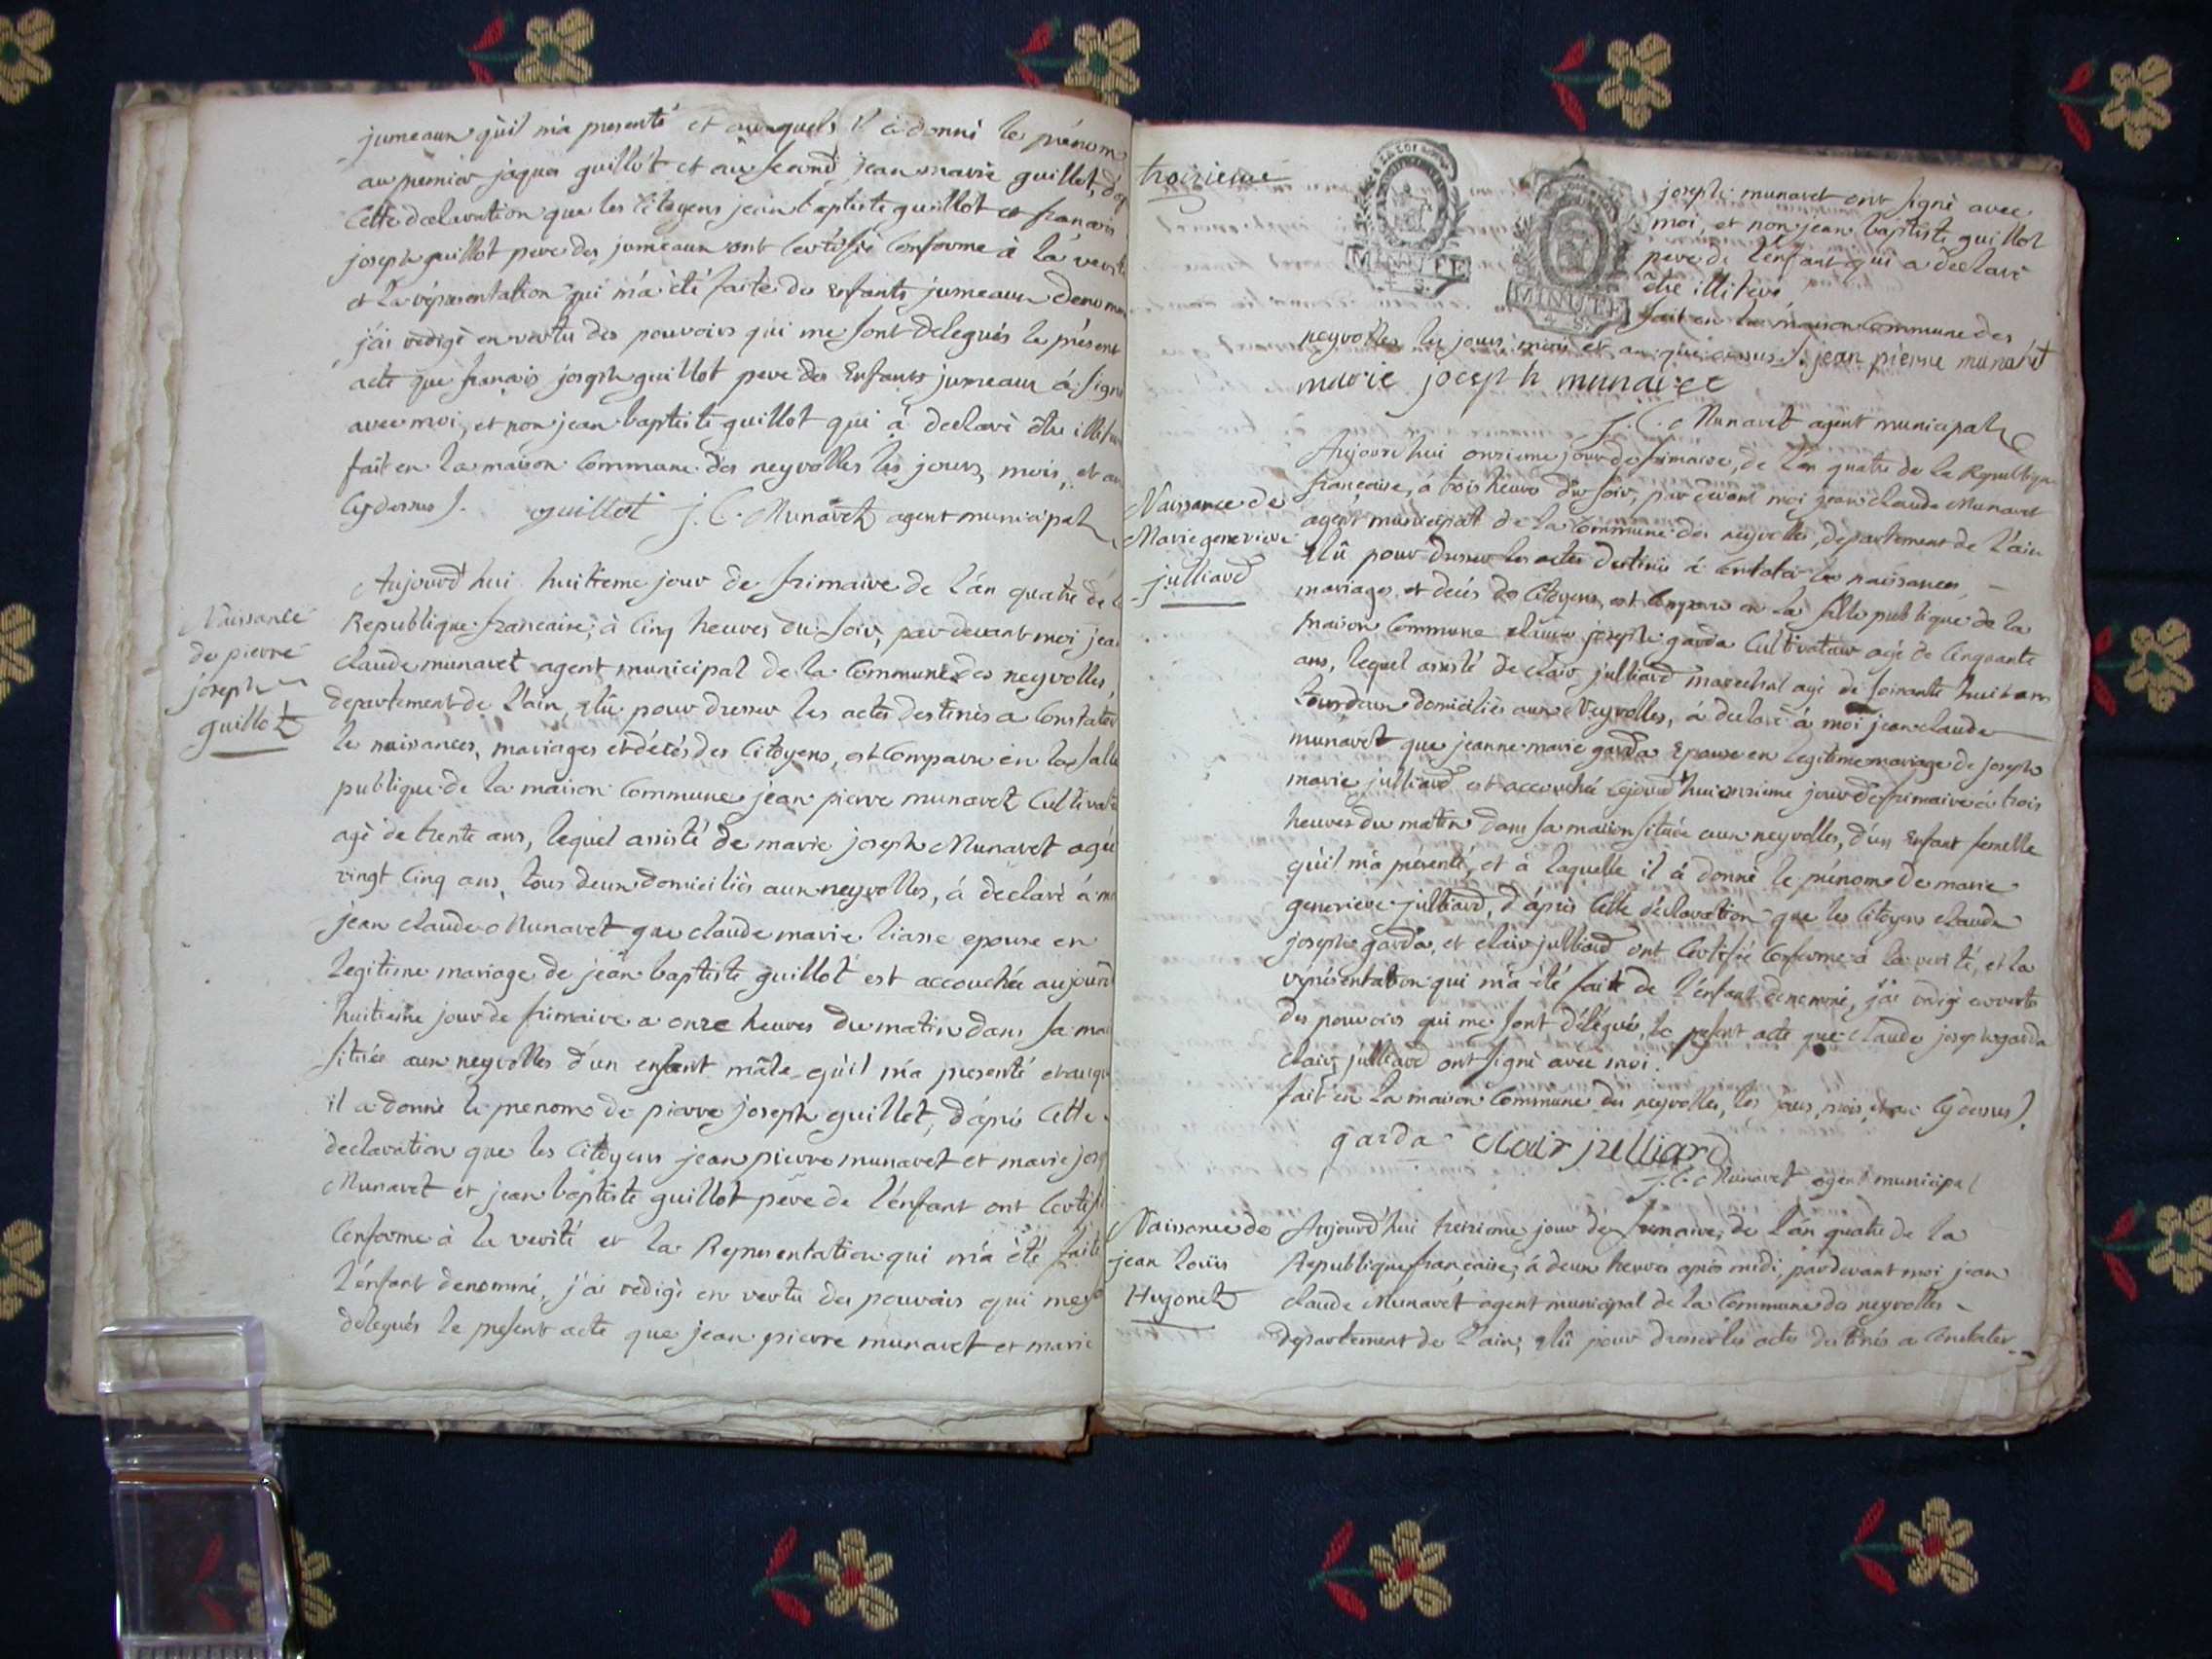 jumeaux qu'il m'a presenté et auxquels il à donné le prénom
au premier jâques guillot et au second jean marie guillot, d'ap
Cette declaration que les Citoyens jean baptiste guillot et françois
joseph guillot pere des jumeaux ont Certifié Conforme à la verité
et la répresentation qui m'à été faite des Enfants jumeaux denomm
j'ai redigé en vertu des pouvoirs qui me sont delegués le présent
acte que françois joseph guillot pere des Enfants jumeaux à signé
avec moi, et non jean baptiste guillot qui à declaré être illiteré
fait en la maison Commune des neyrolles les jours, mois, et an
Cydessus. guillot J. C. Munaret agent municipal
Naissance
de pierre
joseph
guillot
Aujourd'hui huitieme jour de frimaire de l'an quatre de la
Republique francaise, à Cinq heures du soir, par devant moi jean
claude munaret agent municipal de la Commune des neyrolles,
departement de l'ain, elû pour dresser les actes destinés a Constater
le naissances, mariages et décés des Citoyens, est Comparu en la salle
publique de la maison Commune jean pierre munaret Cultivate
agé de trente ans, lequel assisté de marie joseph Munaret agé
vingt Cinq ans, tous deux domiciliés aux neyrolles, à declaré à m
jean claude Munaret que claude marie liasse epouse en
legitime mariage de jean baptiste guillot est accouchée aujourd
huitieme jour de frimaire a onze heures du matin dans sa mai
située aux neyrolles d'un enfant mâle qu'il m'a presenté et auqu
il a donné le prenom de pierre joseph guillot, d'après Cette
declaration que les Citoyens jean pierre munaret et marie jose
Munaret et jean baptiste guillot pere de l'enfant ont Certifié
Conforme à la verité et la Representation qui m'a été faite
l'énfant denommé, j'ai redigé en vertu des pouvoirs qui me so
delegués le present acte que jean pierre munaret et marie
troisieme
MINUTE
4 S.
MINUTE
4 S.
joseph munaret ont signé avec
moi, et non jean baptiste guillot
pere de l'enfant qui a declaré
être illiteré
fait en la maison Commune des
neyrolles les jours, mois et an que dessus. jean pierre munaret
marie joseph munaret
J. C. Munaret agent municipal
Naissance de
Marie genevieve
julliard
Aujourd'hui onzieme jour de frimaire, de l'an quatre de la Republique
francaise, à trois heures du soir, par devant moi jean claude Munaret
agent municipal de la Commune des neyrolles, departement de l'ain
elû pour dresser les actes destinés à Constater les naissances
mariages et decés des Citoyens, est Comparu en la salle publique de la
maison Commune claude joseph garda Cultivateur agé de Cinquante
ans, lequel assisté de clair julliard marechal agé de soixante huit ans
tous deux domiciliés aux Neyrolles, à declaré à moi jean claude
munaret que jeanne marie garda Epouse en legitime mariage de joseph
marie julliard est accouchée cejourd'hui onzieme jour de frimaire à trois
heures du matin dans sa maison située aux neyrolles, d'un Enfant femelle
qu'il m'a présenté, et à laquelle il à donné le prénom de marie
genevieve julliard, d'après Cette déclaration que les Citoyens claude
joseph garda, et clair julliard ont Certifié Conforme à la verité, et la
représentation qui m'à été faite de l'énfant denommé, j'ai redigé en vertu
des pouvoirs qui me sont délégués, le present acte que claude joseph garda
clair julliard ont signé avec moi.
fait en la maison Commune des neyrolles, les jours, mois, et an Cydessus.
garda clair julliard
J. C. Munaret agent municipal
Naissance de
jean louis
Hugonet
Aujourd'hui treizieme jour de frimaire, de l'an quatre de la
Republique française, à deux heures après midi, pardevant moi jean
claude Munaret agent municipal de la Commune des neyrolles
departement de l'ain, elû pour dresser les actes destinés a Constater